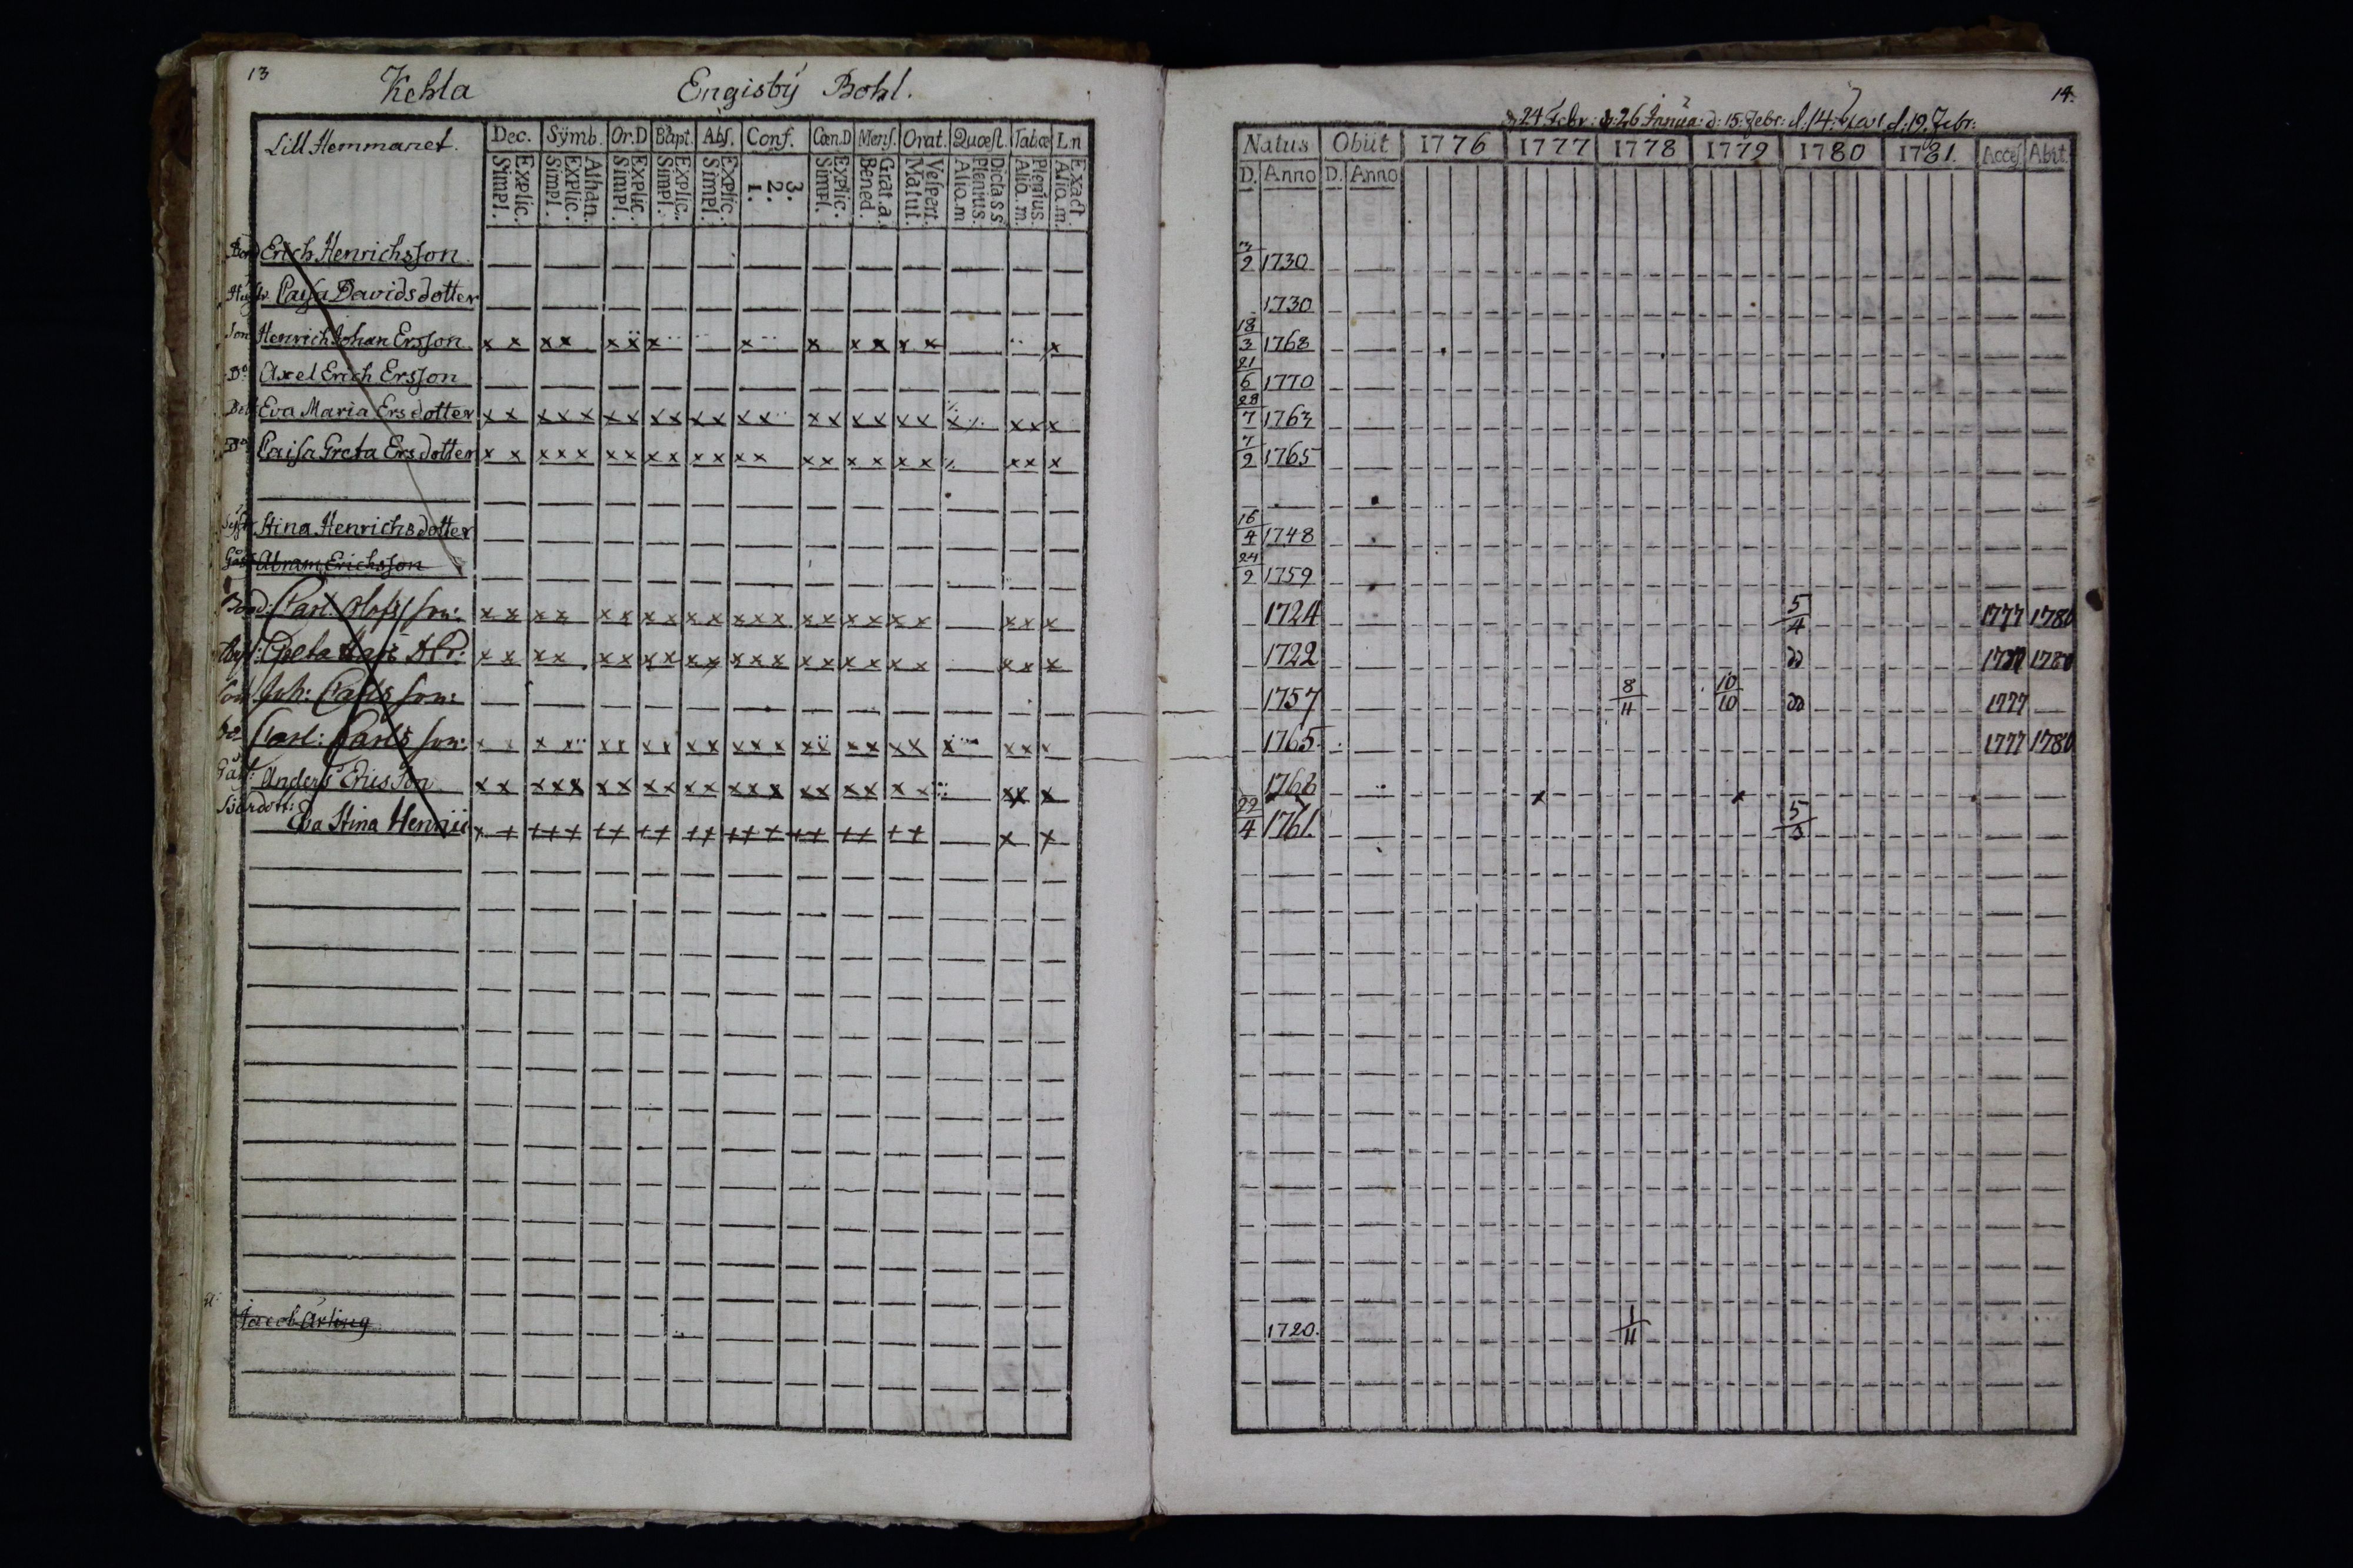 13
Kehla Engisbÿ Bohl.
Lill Hemmanet. Dec. Sÿmb. Or.D Bapt. Abſ. Conf. Cœn.D Menſ. Orat. Quœſt. Tabœ L.n
Simpl. Explic. Simpl. Explic. Athan. Simpl. Explic. Simpl. Explic. Simpl. Explic. 1. 2. 3. Simpl. Explic. Bened. Grat.a. Matut. Veſpert. Alio.m Plenius. Alio.m. Plenius. Alio.m. Exact.
Erich Henrichsſon
Caiſa Davidsdotter
Son Henrich Johan Ersſon x x x x x x x x x x x x x x
Do Axel Erich Ersſon
Eva Maria Ersdotter x x x x x x x x x x x x x x x x x x x x x x x x
Do Caiſa Greta Ersdotter x x x x x x x x x x x x x x x x x x x x x x
Stina Henrichsdotter
Abram Erichsſon
Bond: Carl Olofsſon: x x x x x x x x x x x x x x x x x x x x x x
Greta x x x x x x x x x x x x x x x x x x x x x x
Son Joh: Carlsſon:
Do Carl: Carlsſon: x x x x x x x x x x x x x x x x x x x x x x x
Anders Ericsſon x x x x x x x x x x x x x x x x x x x x x x x
Eva Stina Henric
Jacob Ärling
14.
d: 24 Febr: d: 26 Janua: d: 15. Febr: d: 14: d: 19. Febr:
Natus Obiit 1776 1777 1778 1779 1780 1781. Acceſ Abit.
D. Anno D. Anno
1730
1730
18/3 1768
21/6 1770
28/7 1763
7/2 1765
16/4 1748
24/2 1759
1724 5/4 1777 1780
1722 do 1777 1780
1757 8/11 10/10 do 1777
1765 1777 1780
1768 x x
22/4 1761. 5/3
1720. 1/11